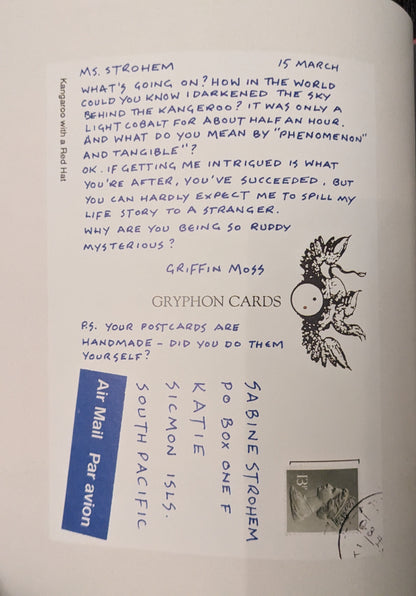 MS. STROHEM 15 MARCH
WHAT'S GOING ON? HOW IN THE WORLD
COULD YOU KNOW I DARKENED THE SKY
BEHIND THE KANGEROO? IT WAS ONLY A
LIGHT COBALT FOR ABOUT HALF AN HOUR.
AND WHAT DO YOU MEAN BY "PHENOMENON"
AND TANGIBLE"?
OK. IF GETTING ME INTRIGUED IS WHAT
YOU'RE AFTER, YOU'VE SUCCEEDED, BUT
YOU CAN HARDLY EXPECT ME TO SPILL MY
LIFE STORY TO A STRANGER.
WHY ARE YOU BEING SO RUDDY
MYSTERIOUS?
GRIFFIN MOSS
Kangaroo with a Red Hat
GRYPHON CARDS
P.S. YOUR POSTCARDS ARE
HANDMADE – DID YOU DO THEM
YOURSELF?
SABINE STROHEM
PO BOX ONE F
KATIE
SICMON ISLS.
SOUTH PACIFIC
Air Mail Par avion
13P